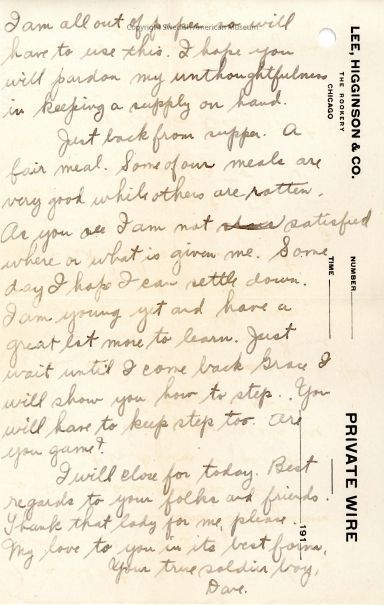 I am all out of paper so will
have to use this. I hope you
will pardon my unthoughtfulness
in keeping a supply on hand.
Just back from supper. A
fair meal. Some of our meals are
very good while others are rotten.
As you see I am not satisfied
where or what is given me. Some
day I hope I can settle down.
I am young yet and have a
great lot more to learn. Just
wait until I come back Grace I
will show you how to step. You
will have to keep step too. Are
you game?
I will close for today. Best
regards to your folks and friends.
Thank that lady for me, please.
My love to you in its best form,
Your true soldier boy,
Dave.
Copyright Swedish American Museum
LEE, HIGGINSON & CO.
THE ROOKERY
CHICAGO
NUMBER
TIME
PRIVATE WIRE
191